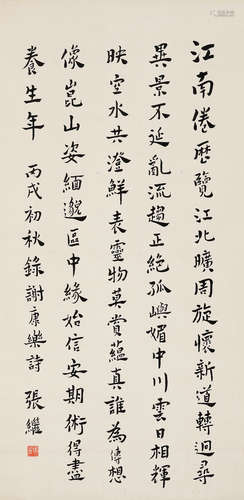 江南倦歷覽江北曠周旋懷新道轉迥尋
異景不延亂流趨正絕孤嶼媚中川雲日相輝
映空水共澄鮮表靈物莫賞蘊真誰為傳想
像崑山姿緬邈區中緣始信安期術得盡
養生年 丙戌初秋錄謝康樂詩 張繼